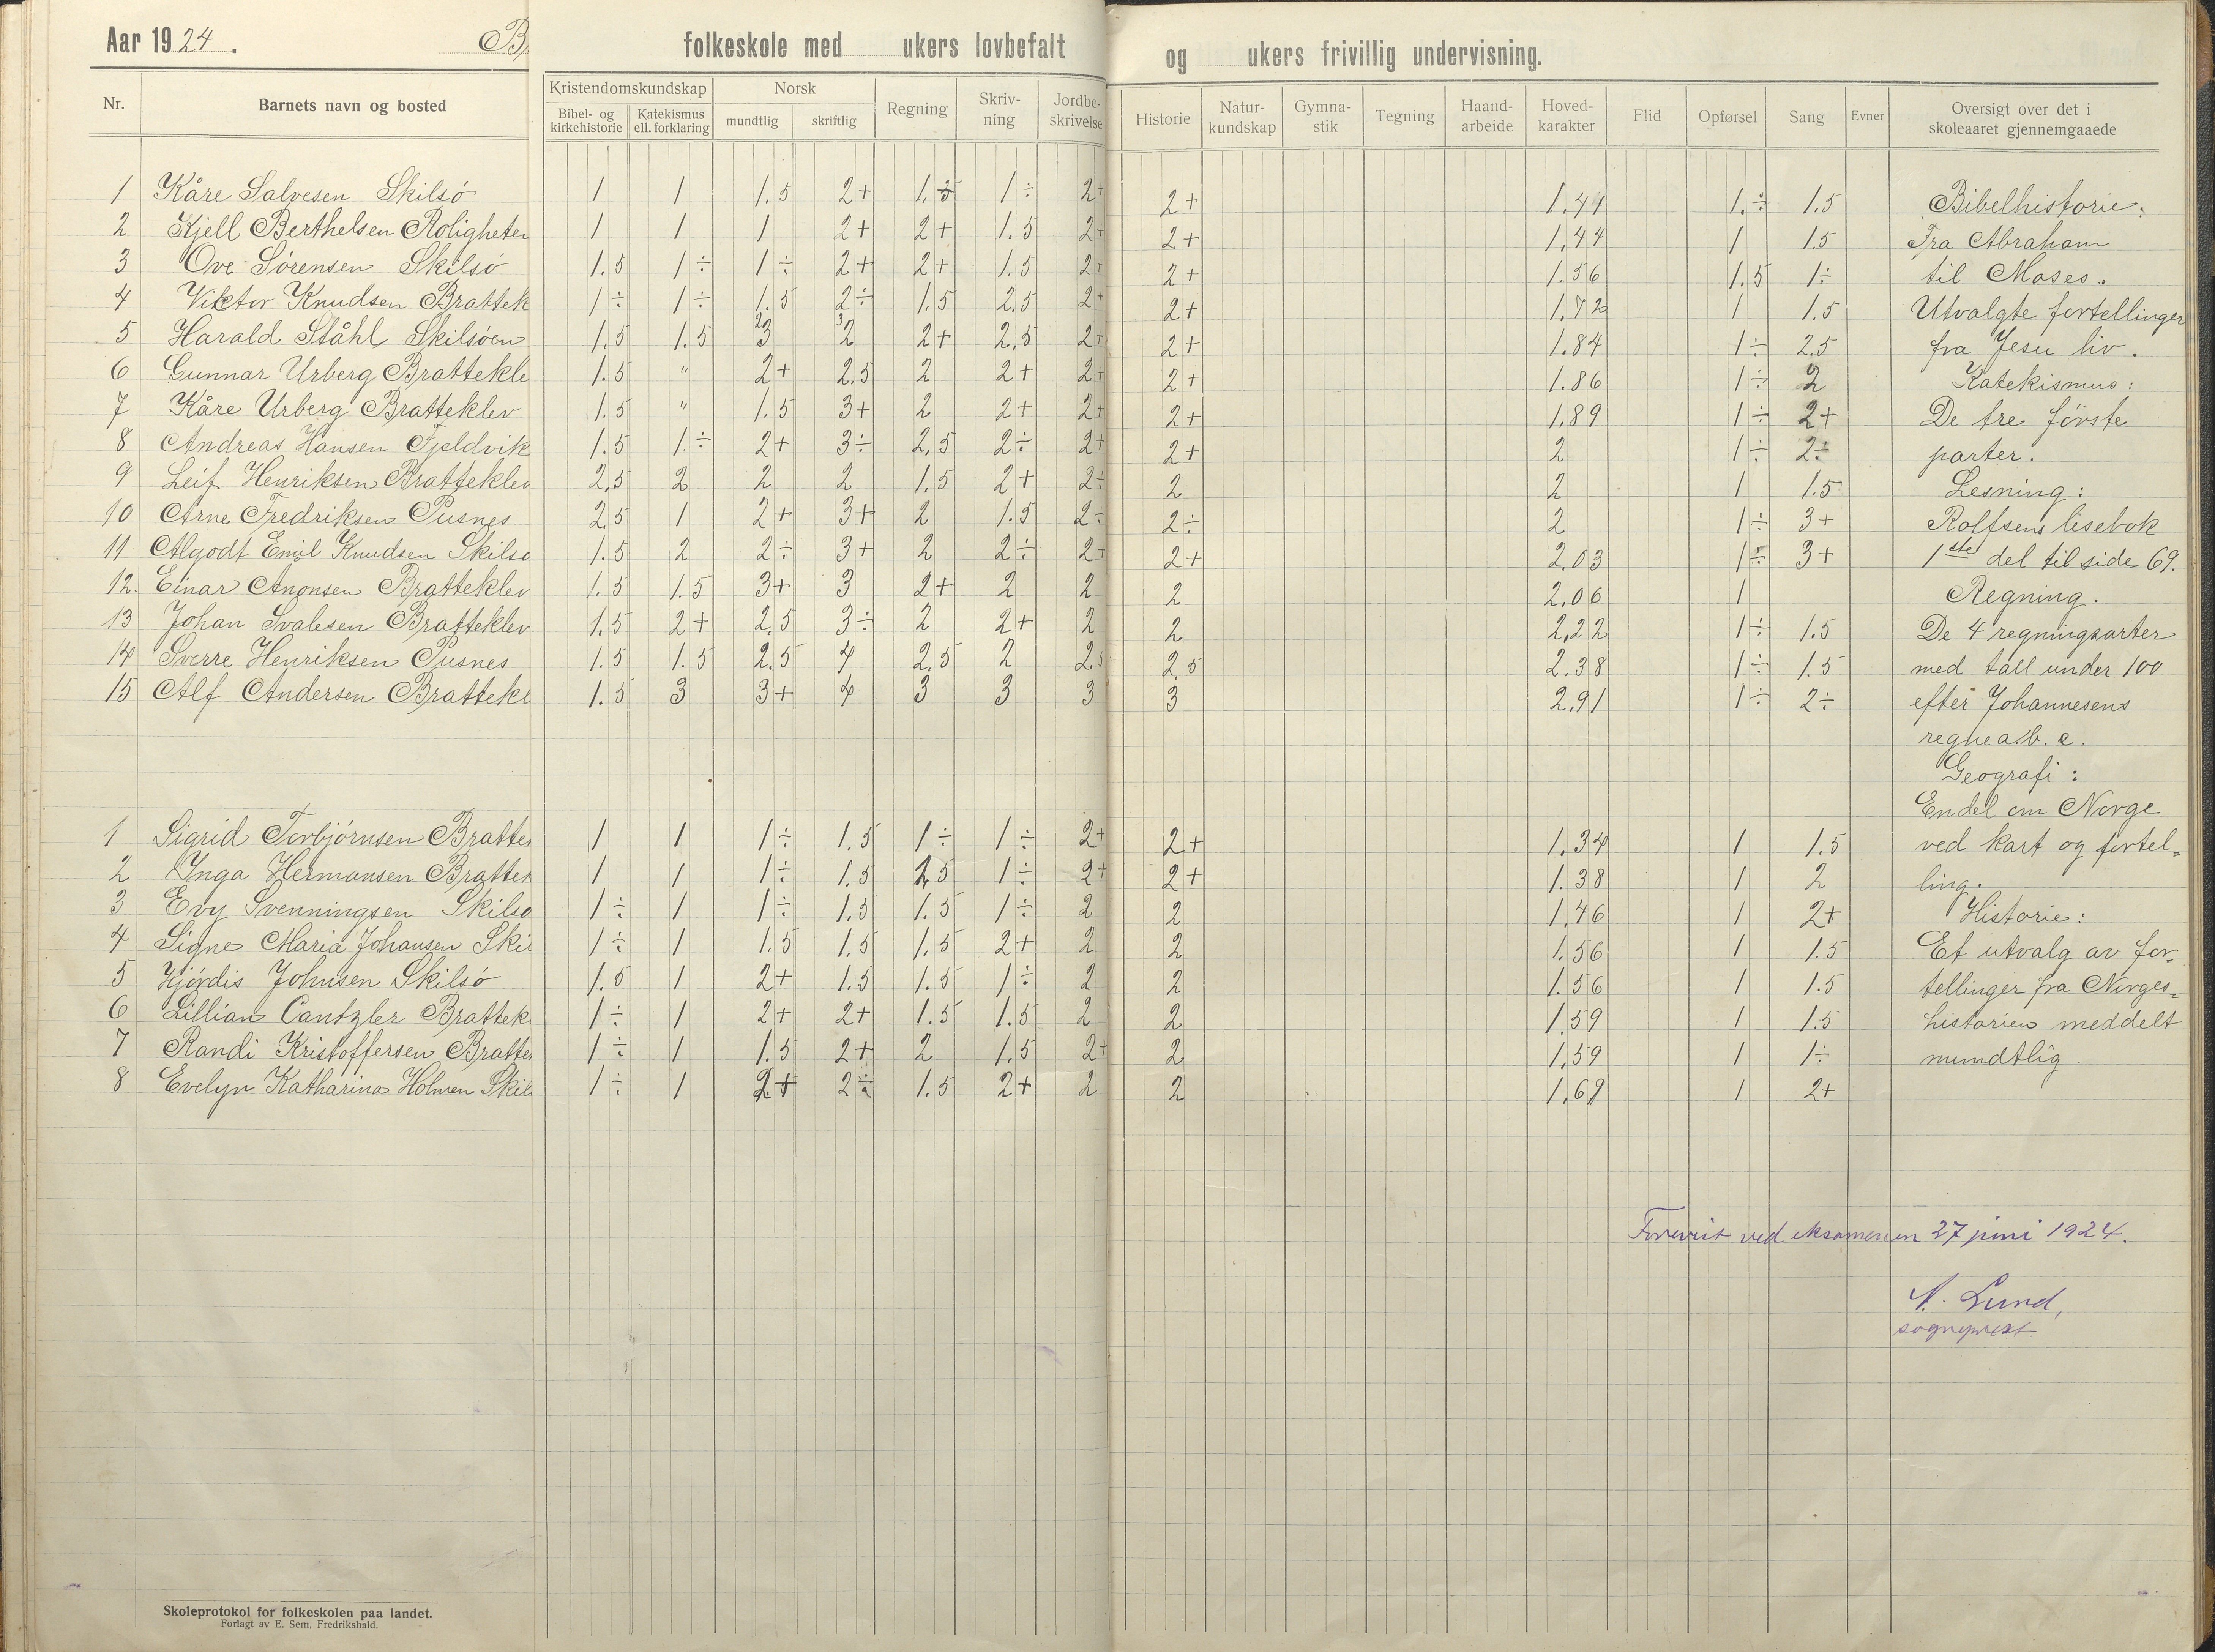 Aar 1924. B folkeskole med ukers lovbefalt og ukers frivillig undervisning.
Nr. Barnets navn og bosted Kristendomskundskap Bibel- og kirkehistorie Katekismus ell. forklaring Norsk mundtlig skriftlig Regning Skriv-ning Jordbe-skrivelse Historie Natur-kundskap Gymna-stik Tegning Haand-arbeide Hoved-karakter Flid Opførsel Sang Evner Oversigt over det i skoleaaret gjennemgaaede
1 Kåre Salvesen Skilsø 1 1 1.5 2+ 1.5 1÷ 2+ 2+ 1.41 1.÷ 1.5 Bibelhistorie:
2 Kjell Berthelsen Roligheten 1 1 1 2+ 2+ 1.5 2+ 2+ 1.44 1 1.5 Fra Abraham
3 Ove Sørensen Skilsø 1.5 1÷ 1÷ 2+ 2+ 1.5 2+ 2+ 1.56 1.5 1÷ til Moses.
4 Viktor Knudsen Brattek 1÷ 1÷ 1.5 2÷ 1.5 2.5 2+ 2+ 1.72 1 1.5 Utvalgte fortellinger
5 Harald Ståhl Skilsøen 1.5 1.5 3 2 2+ 2.5 2+ 2+ 1.84 1÷ 2.5 fra Jesu liv.
6 Gunnar Urberg Brattekle 1.5 " 2+ 2.5 2 2+ 2+ 2+ 1.86 1÷ 2 Katekismus:
7 Kåre Urberg Bratteklev 1.5 " 1.5 3+ 2 2+ 2+ 2+ 1.89 1÷ 2+ De tre første
8 Andreas Hansen Fjeldvik 1.5 1.÷ 2+ 3÷ 2.5 2÷ 2+ 2+ 2 1÷ 2÷ parter.
9 Leif Henriksen Bratteklev 2.5 2 2 2 1.5 2+ 2÷ 2 2 1 1.5 Lesning:
10 Arne Fredriksen Pusnes 2.5 1 2+ 3+ 2 1.5 2÷ 2÷ 2 1÷ 3+ Rolfsens lesebok
11 Algodt Emil Knudsen Skilsø 1.5 2 2÷ 3+ 2 2÷ 2+ 2+ 2.03 1÷ 3+ 1ste del til side 69.
12. Einar Anonsen Bratteklev 1.5 1.5 3+ 3 2+ 2 2 2 2.06 1 Regning.
13 Johan Svalesen Bratteklev 1.5 2+ 2.5 3÷ 2 2+ 2 2 2.22 1÷ 1.5 De 4 regningsarter
14 Sverre Henriksen Pusnes 1.5 1.5 2.5 4 2.5 2 2.5 2.5 2.38 1÷ 1.5 med tall under 100
15 Alf Andersen Brattekl 1.5 3 3+ 4 3 3 3 3 2.91 1÷ 2÷ efter Johannesens
regnea.b.c.
Geografi:
Endel om Norge
1 Sigrid Torbjørnsen Bratte 1 1 1÷ 1.5 1÷ 1÷ 2+ 2+ 1.34 1 1.5 ved kart og fortel=
2 Inga Hermansen Brattek 1 1 1÷ 1.5 1.5 1÷ 2+ 2+ 1.38 1 2 ling.
3 Evy Svenningsen Skilsø 1÷ 1 1÷ 1.5 1.5 1÷ 2 2 1.46 1 2+ Historie:
4 Signe Maria Johansen Skil 1÷ 1 1.5 1.5 1.5 2+ 2 2 1.56 1 1.5 Et utvalg av for=
5 Hjørdis Johnsen Skilsø 1.5 1 2+ 1.5 1.5 1÷ 2 2 1.56 1 1.5 tellinger fra Norges=
6 Lillian Cantzler Brattek 1÷ 1 2+ 2+ 1.5 1.5 2 2 1.59 1 1.5 historien meddelt
7 Randi Kristoffersen Bratte 1÷ 1 1.5 2+ 2 1.5 2+ 2 1.59 1 1÷ mundtlig.
8 Evelyn Katharina Holmen Skil 1÷ 1 2+ 2÷ 1.5 2+ 2 2 1.69 1 2+
Forevist ved eksamenen 27 juni 1924.
A. Lund,
sogneprest.
Skoleprotokol for folkeskolen paa landet.
Forlagt av E. Sem, Fredrikshald.